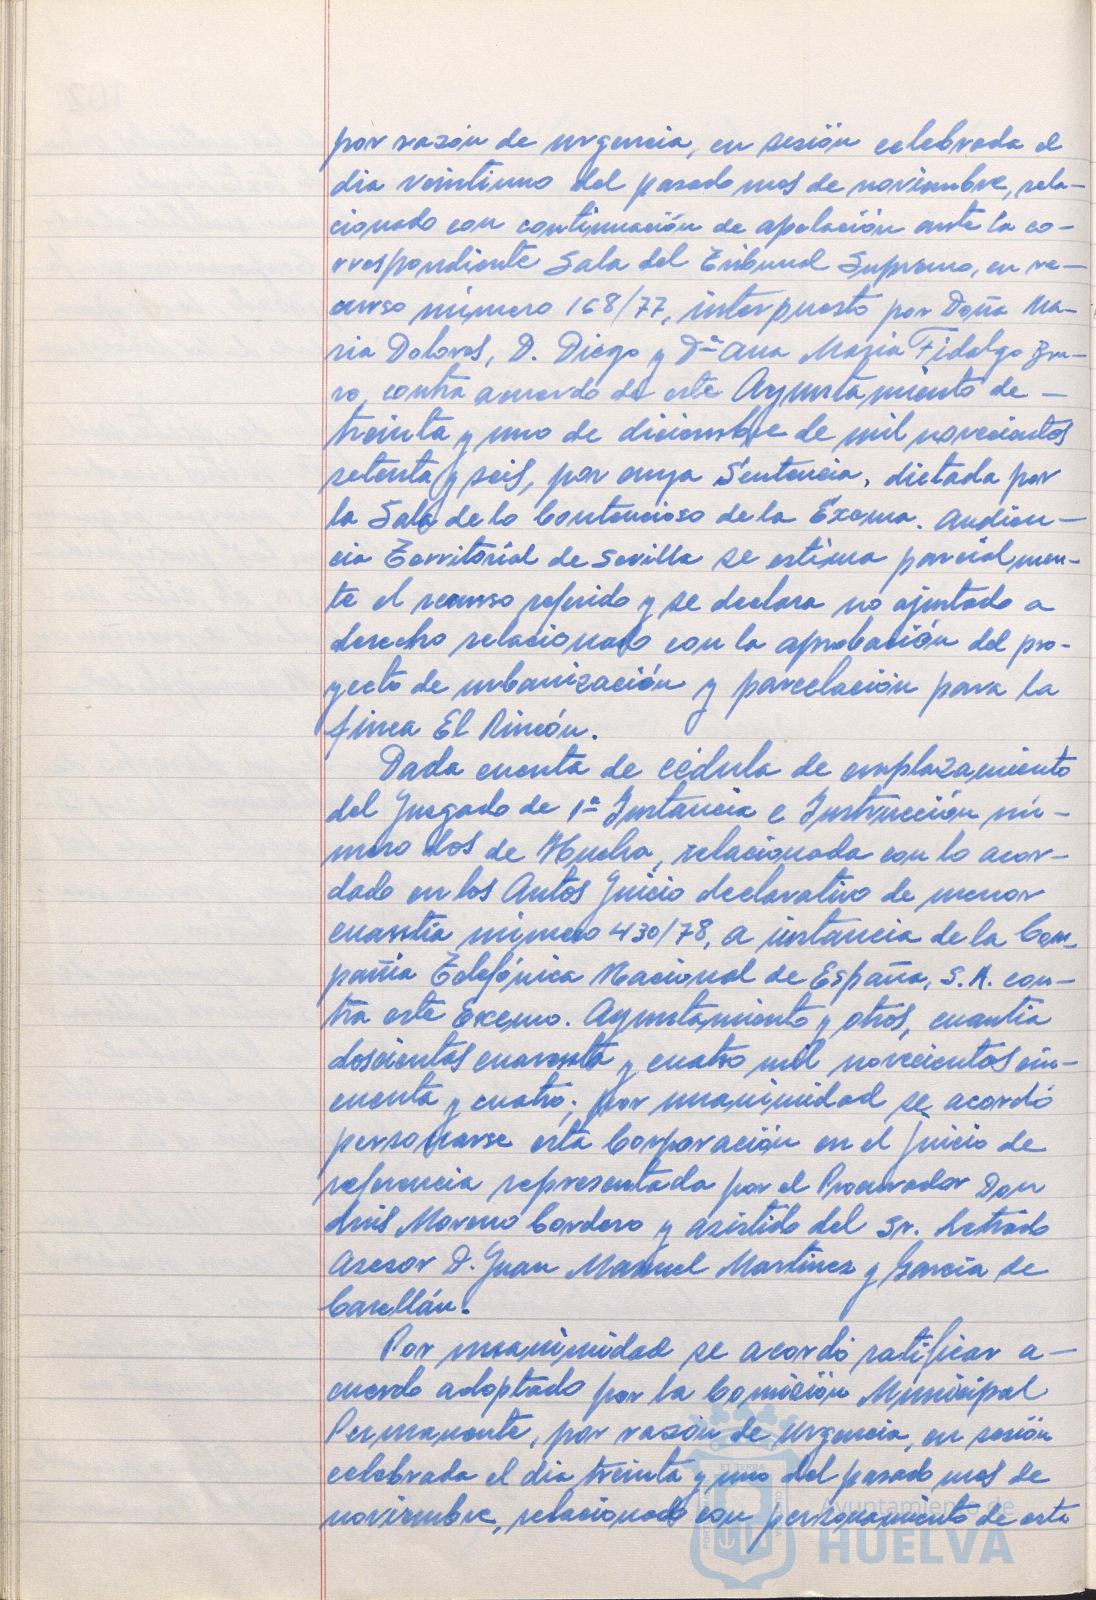 por razón de urgencia, en sesión celebrada el
dia veintiuno del pasado mes de noviembre, rela-
cionado con continuación de apelación ante la co-
rrespondiente Sala del Tribunal Supremo, en re-
curso número 168/77, interpuesto por Doña Ma-
ria Dolores, D. Diego y Dª Ana Maria Fidalgo Bra-
vo, contra acuerdo de este Ayuntamiento de -
treinta y uno de diciembre de mil novecientos
setenta y seis, por cuya Sentencia, dictada por
la Sala de lo Contencioso de la Excma. Audien-
cia Territorial de Sevilla se estima parcialmen-
te el recurso referido y se declara no ajustado a
derecho relacionado con la aprobación del pro-
yecto de urbanización y parcelación para la
finca El Rincón.
Dada cuenta de cédula de emplazamiento
del Juzgado de 1ª Instancia e Instrucción nú-
mero dos de Huelva, relacionada con lo acor-
dado en los Autos Juicio declarativo de menor
cuantia número 430/78, a instancia de la Com-
pañia Telefónica Nacional de España, S.A. con-
tra este Excmo. Ayuntamiento y otros, cuantia
doscientas cuarenta y cuatro mil novecientos cin-
cuenta y cuatro; por unanimidad se acordó
personarse esta Corporación en el juicio de
referencia representada por el Procurador Don
Luis Moreno Cordero y asistido del Sr. Letrado
Asesor D. Juan Manuel Martinez y Garcia de
Casellán.
Por unanimidad se acordó ratificar a-
cuerdo adoptado por la Comisión Municipal
Permanente, por razón de urgencia, en sesión
celebrada el dia treinta y uno del pasado mes de
noviembre, relacionado con personamiento de esta
Ayuntamiento de
HUELVA